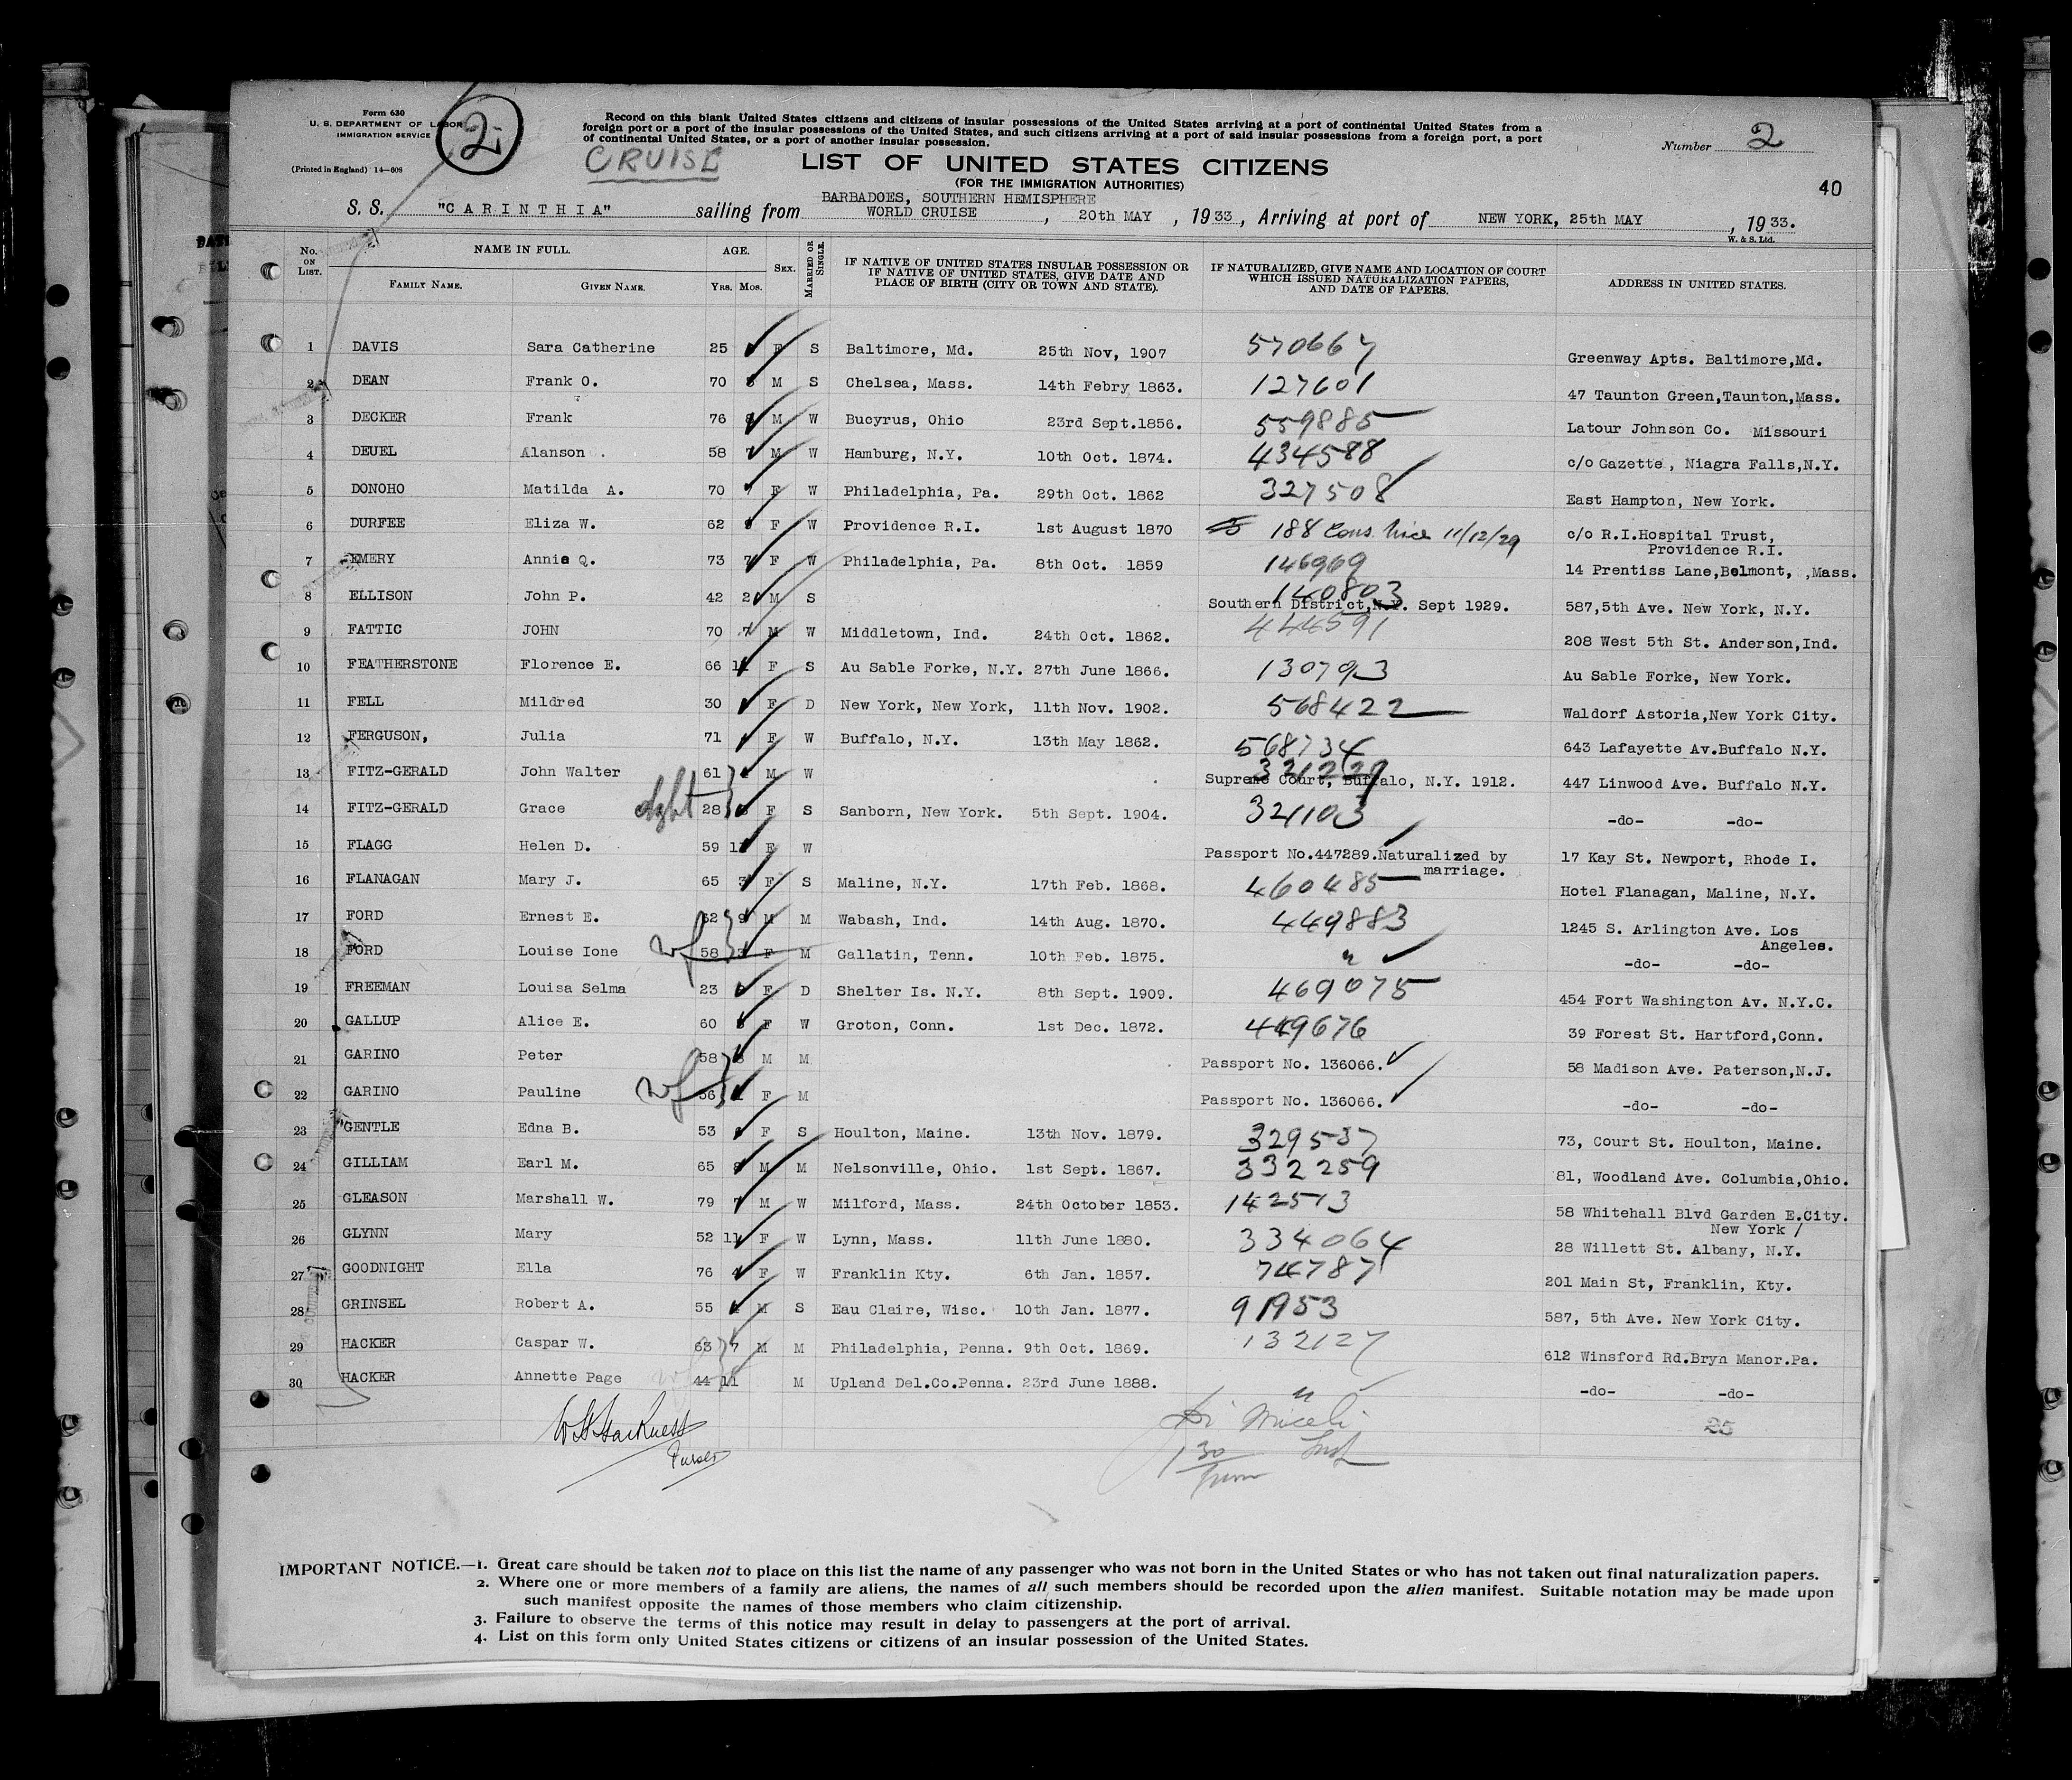 Form 630
U. S. DEPARTMENT OF LABOR
IMMIGRATION SERVICE
(Printed in England) 14—608
2
Record on this blank United States citizens and citizens of insular possessions of the United States arriving at a port of continental United States from a
foreign port or a port of the insular possessions of the United States, and such citizens arriving at a port of said insular possessions from a foreign port, a port
of continental United States, or a port of another insular possession.
CRUISE
LIST OF UNITED STATES CITIZENS
(FOR THE IMMIGRATION AUTHORITIES)
Number 2
40
BARBADOES, SOUTHERN HEMISPHERE
S. S. "CARINTHIA" sailing from WORLD CRUISE, 20th MAY, 1933, Arriving at port of NEW YORK, 25th MAY, 1933.
W. & S. Ltd.
No. ON LIST. NAME IN FULL. FAMILY NAME. GIVEN NAME. AGE. YRS. MOS. SEX. MARRIED OR SINGLE. IF NATIVE OF UNITED STATES INSULAR POSSESSION OR IF NATIVE OF UNITED STATES, GIVE DATE AND PLACE OF BIRTH (CITY OR TOWN AND STATE). IF NATURALIZED, GIVE NAME AND LOCATION OF COURT WHICH ISSUED NATURALIZATION PAPERS, AND DATE OF PAPERS. ADDRESS IN UNITED STATES.
1 DAVIS Sara Catherine 25 F S Baltimore, Md. 25th Nov, 1907 570667 Greenway Apts. Baltimore,Md.
2 DEAN Frank O. 70 3 M S Chelsea, Mass. 14th Febry 1863. 127601 47 Taunton Green,Taunton,Mass.
3 DECKER Frank 76 8 M W Bucyrus, Ohio 23rd Sept.1856. 559885 Latour Johnson Co. Missouri
4 DEUEL Alanson . 58 7 M W Hamburg, N.Y. 10th Oct. 1874. 434588 c/o Gazette, Niagra Falls,N.Y.
5 DONOHO Matilda A. 70 7 F W Philadelphia, Pa. 29th Oct. 1862 327508 East Hampton, New York.
6 DURFEE Eliza W. 62 9 F W Providence R.I. 1st August 1870 188 Cons. Nice 11/12/29 c/o R.I.Hospital Trust,
Providence R.I.
7 EMERY Annie Q. 73 7 F W Philadelphia, Pa. 8th Oct. 1859 146969 14 Prentiss Lane,Belmont, ,Mass.
8 ELLISON John P. 42 2 M S 140803 Southern District,N.Y. Sept 1929. 587,5th Ave. New York, N.Y.
9 FATTIC JOHN 70 7 M W Middletown, Ind. 24th Oct. 1862. 444591 208 West 5th St. Anderson,Ind.
10 FEATHERSTONE Florence E. 66 11 F S Au Sable Forke, N.Y. 27th June 1866. 130793 Au Sable Forke, New York.
11 FELL Mildred 30 F D New York, New York, 11th Nov. 1902. 568422 Waldorf Astoria,New York City.
12 FERGUSON, Julia 71 F W Buffalo, N.Y. 13th May 1862. 568734 643 Lafayette Av.Buffalo N.Y.
13 FITZ-GERALD John Walter 61 M W 321227 Supreme Court, Buffalo, N.Y. 1912. 447 Linwood Ave. Buffalo N.Y.
14 FITZ-GERALD Grace dght 28 8 F S Sanborn, New York. 5th Sept. 1904. 321103 -do- -do-
15 FLAGG Helen D. 59 11 F W Passport No.447289.Naturalized by
marriage. 17 Kay St. Newport, Rhode I.
16 FLANAGAN Mary J. 65 3 F S Maline, N.Y. 17th Feb. 1868. 460485 Hotel Flanagan, Maline, N.Y.
17 FORD Ernest E. 62 9 M M Wabash, Ind. 14th Aug. 1870. 449883 1245 S. Arlington Ave. Los
Angeles.
18 FORD Louise Ione wf 58 3 F M Gallatin, Tenn. 10th Feb. 1875. " -do- -do-
19 FREEMAN Louisa Selma 23 F D Shelter Is. N.Y. 8th Sept. 1909. 469075 454 Fort Washington Av. N.Y.C.
20 GALLUP Alice E. 60 F W Groton, Conn. 1st Dec. 1872. 449676 39 Forest St. Hartford,Conn.
21 GARINO Peter 58 M M Passport No. 136066. 58 Madison Ave. Paterson,N.J.
22 GARINO Pauline wf 56 F M Passport No. 136066. -do- -do-
23 GENTLE Edna B. 53 F S Houlton, Maine. 13th Nov. 1879. 329537 73, Court St. Houlton, Maine.
24 GILLIAM Earl M. 65 8 M M Nelsonville, Ohio. 1st Sept. 1867. 332259 81, Woodland Ave. Columbia,Ohio.
25 GLEASON Marshall W. 79 7 M W Milford, Mass. 24th October 1853. 142513 58 Whitehall Blvd Garden E.City.
New York /
26 GLYNN Mary 52 11 F W Lynn, Mass. 11th June 1880. 334064 28 Willett St. Albany, N.Y.
27 GOODNIGHT Ella 76 4 F W Franklin Kty. 6th Jan. 1857. 74787 201 Main St, Franklin, Kty.
28 GRINSEL Robert A. 55 M S Eau Claire, Wisc. 10th Jan. 1877. 91953 587, 5th Ave. New York City.
29 HACKER Caspar W. 63 7 M M Philadelphia, Penna. 9th Oct. 1869. 132127 612 Winsford Rd.Bryn Manor.Pa.
30 HACKER Annette Page wf 44 11 M Upland Del.Co.Penna. 23rd June 1888. " -do- -do-
W. H. Harkness
Purser
Miceli
Insp
1 30
25
IMPORTANT NOTICE.—1. Great care should be taken not to place on this list the name of any passenger who was not born in the United States or who has not taken out final naturalization papers.
2. Where one or more members of a family are aliens, the names of all such members should be recorded upon the alien manifest. Suitable notation may be made upon
such manifest opposite the names of those members who claim citizenship.
3. Failure to observe the terms of this notice may result in delay to passengers at the port of arrival.
4. List on this form only United States citizens or citizens of an insular possession of the United States.